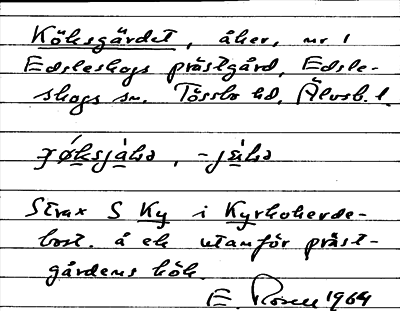 Köksgärdet, åker, nr 1
Edsleskogs prästgård, Edsle-
skogs sn. Tössbo hd, Älvsb. l.
Strax S Ky i Kyrkoherde-
bost. å ek utanför präst-
gårdens kök.
E. Rosell 1964